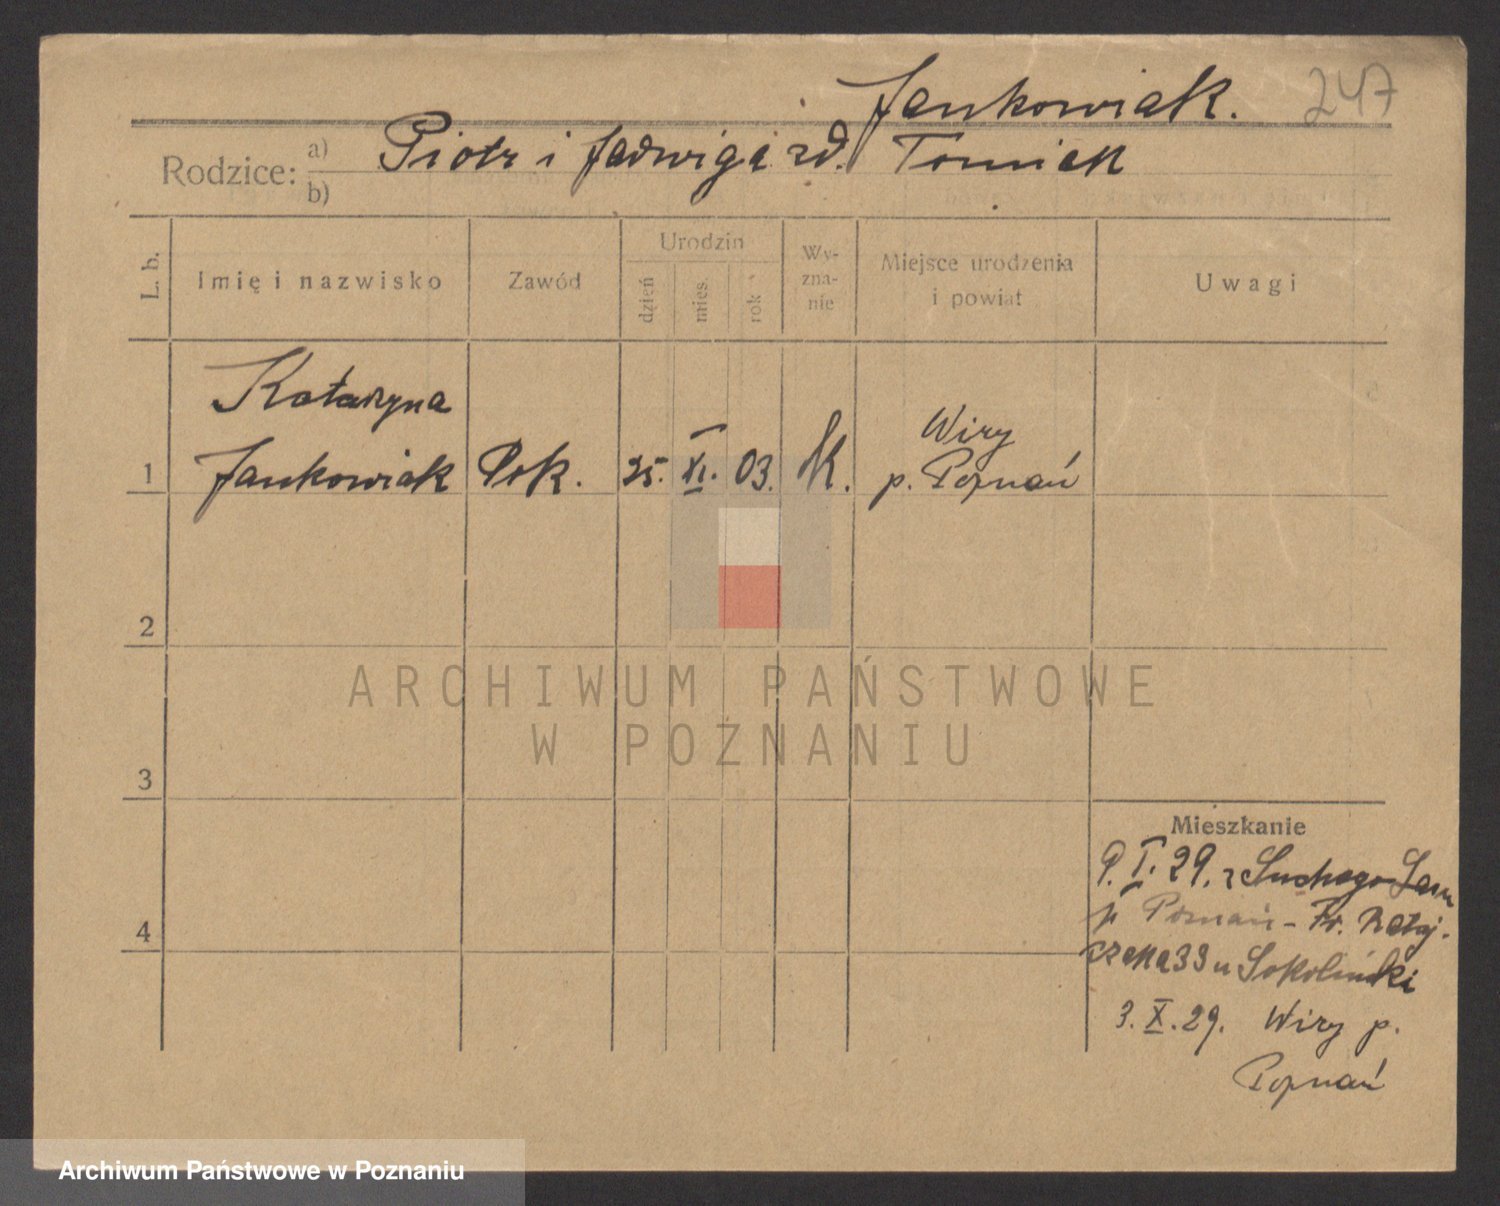 Jankowiak. 247
Rodzice: a) Piotr i Jadwiga zd. Tomiak
b)
L. b. Imię i nazwisko Zawód Urodzin dzień mies. rok Wy-zna-nie Miejsce urodzenia i powiat Uwagi
Katarzyna
1 Jankowiak Pok. 25. XI. 03. K. Wiry
p. Poznań
2
ARCHIWUM PAŃSTWOWE
W POZNANIU
3
Mieszkanie
9. I. 29. z Suchego
4 p Poznań - Fr. Rataj-
czaka 33 u Sokoliński
3. X. 29. Wiry p.
Poznań
Archiwum Państwowe w Poznaniu